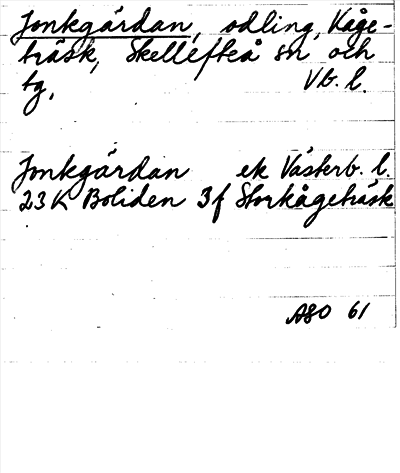 Jonkgärdan, odling, Kåge-
träsk, Skellefteå sn och
tg, Vb. l.
Jonkgärdan ek Västerb. l.
23K Boliden 3f Storkågeträsk
ASO 61